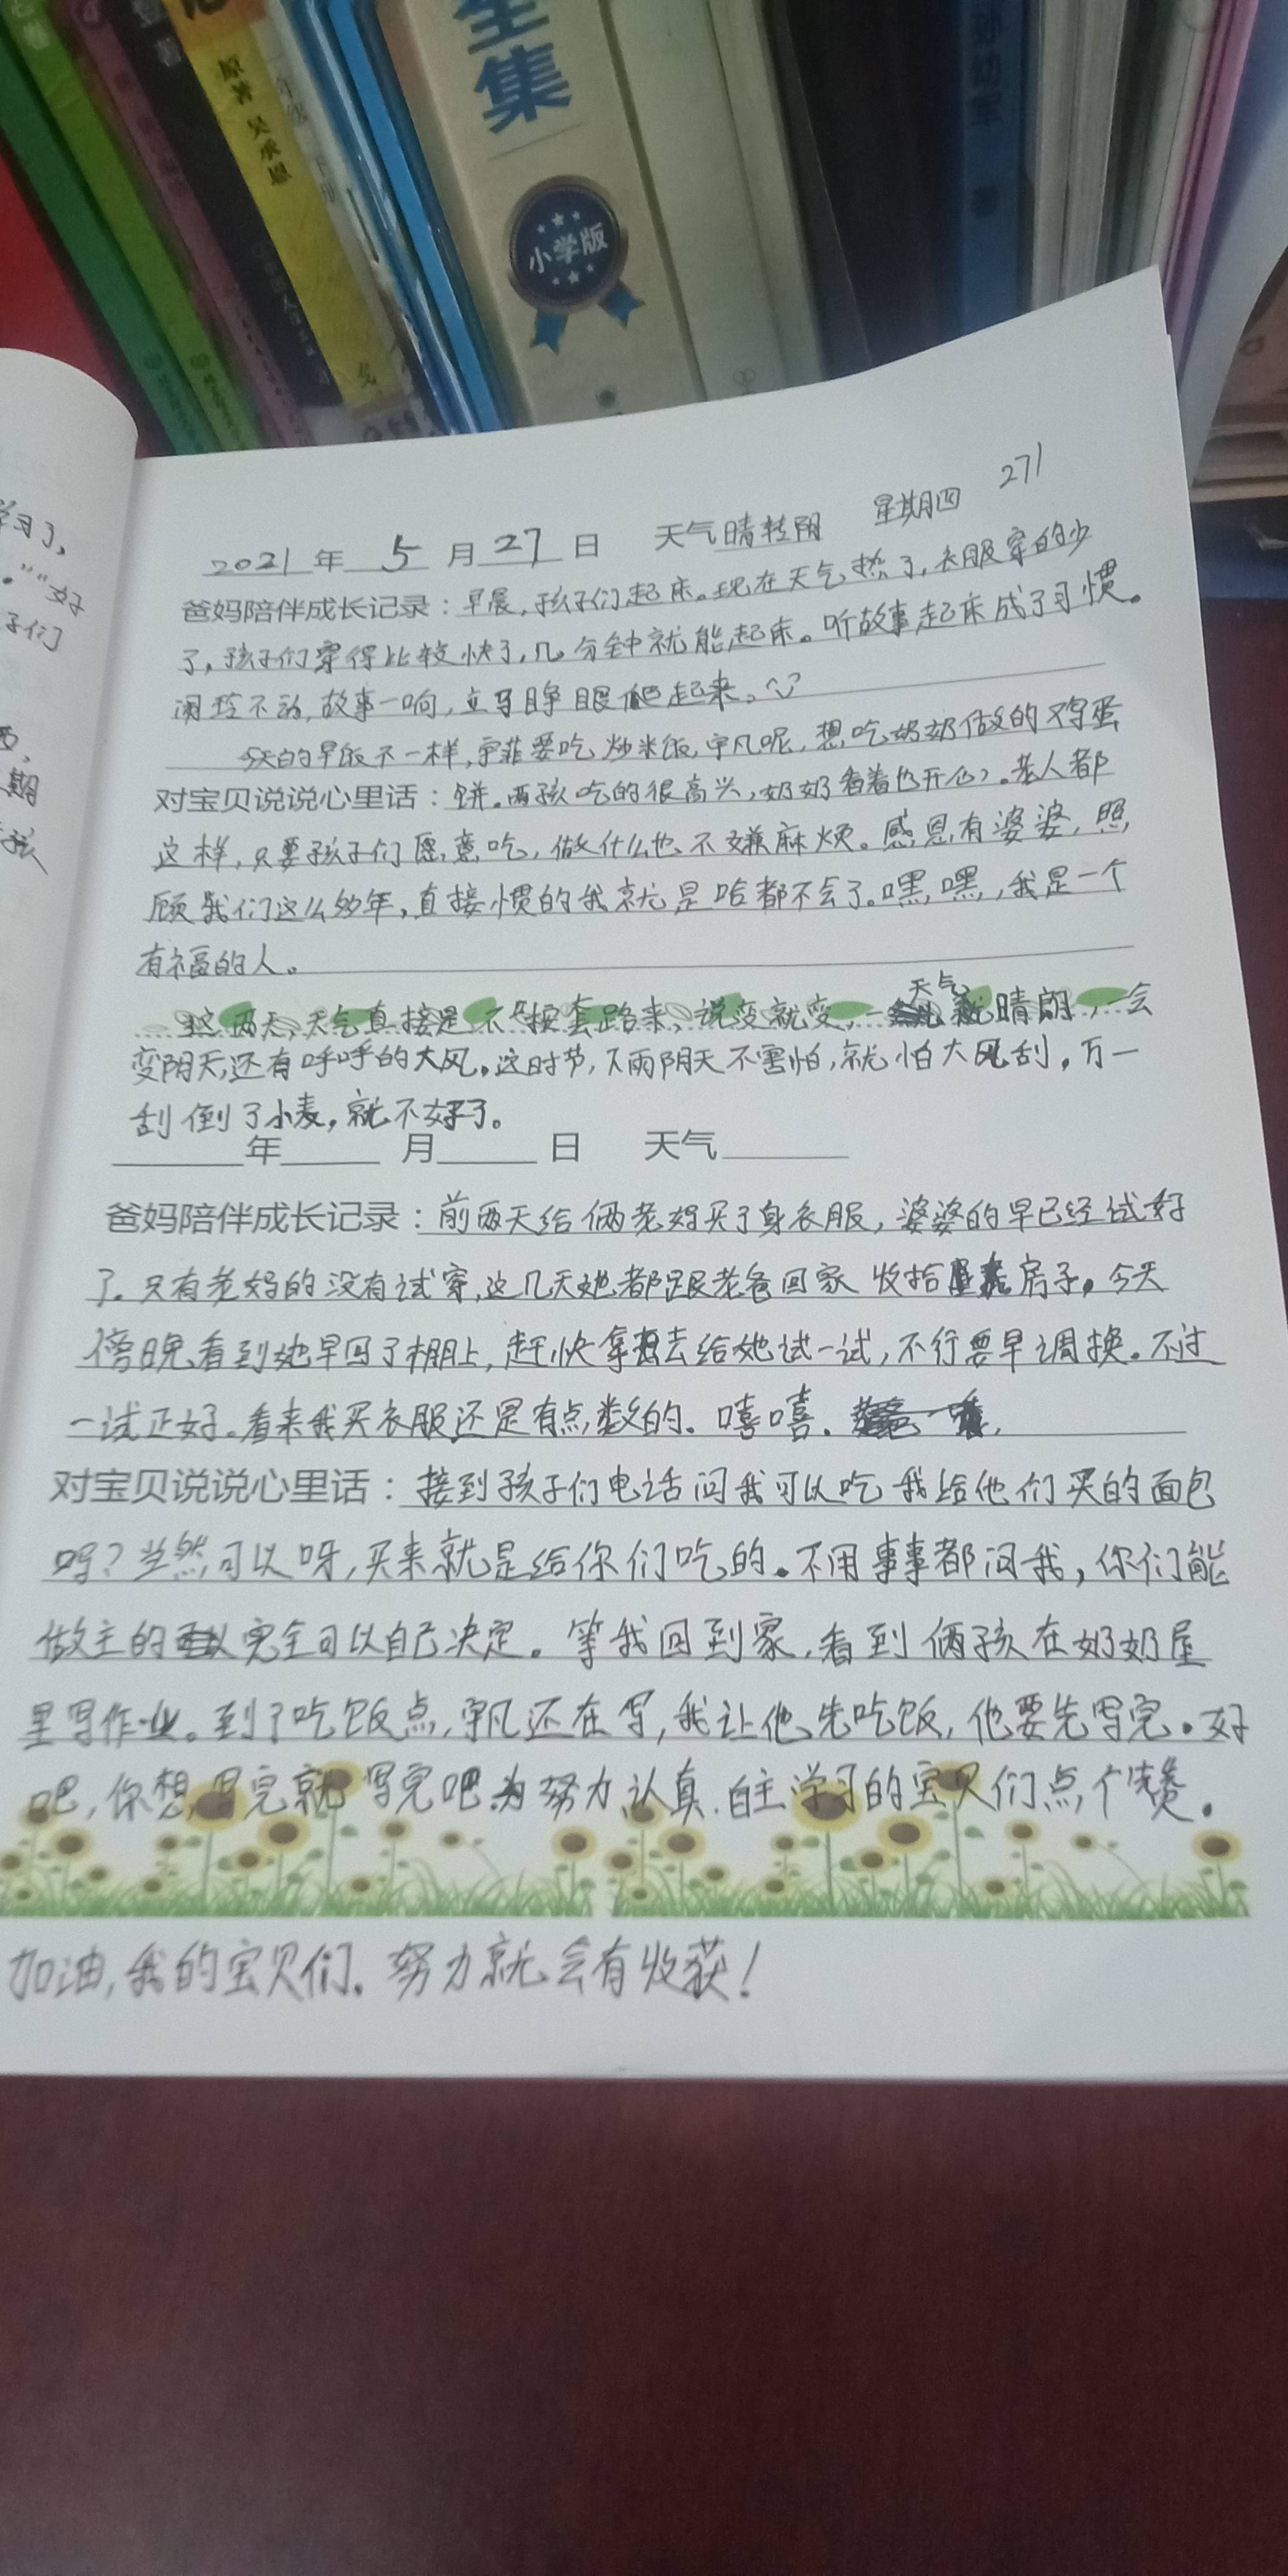 全集
小学版
原著 吴承恩
学习了，
。""好
子们
期
孩
271
2021年 5 月 27 日 天气 晴转阴 星期四
爸妈陪伴成长记录：早晨，孩子们起床。现在天气热了，衣服穿的少
了，孩子们穿得比较快了，几分钟就能起床。听故事起床成了习惯。
闹铃不动，故事一响，立马睁眼爬起来。
今天的早饭不一样，宇菲要吃炒米饭，宇凡呢，想吃奶奶做的鸡蛋
对宝贝说说心里话：饼。两孩吃的很高兴，奶奶看着也开心。老人都
这样，只要孩子们愿意吃，做什么也不嫌麻烦。感恩有婆婆，照
顾我们这么多年，直接惯的我就是啥都不会了。嘿嘿，我是一个
有福的人。
这两天，天气直接是不按套路来，说变就变，一会天气晴朗，一会
变阴天，还有呼呼的大风。这时节，下雨阴天不害怕，就怕大风刮。万一
刮倒了小麦，就不好了。
年 月 日 天气
爸妈陪伴成长记录：前两天给俩老妈买了身衣服，婆婆的早已经试好
了。只有老妈的没有试穿，这几天她都跟老爸回家收拾房子。今天
傍晚看到她早回了棚上，赶快拿去给她试一试，不行要早调换。不过
一试正好。看来我买衣服还是有点数的。嘻嘻。
对宝贝说说心里话：接到孩子们电话问我可以吃我给他们买的面包
吗？当然可以呀，买来就是给你们吃的。不用事事都问我，你们能
做主的完全可以自己决定。等我回到家，看到俩孩在奶奶屋
里写作业。到了吃饭点，宇凡还在写，我让他先吃饭，他要先写完。好
吧，你想写完就写完吧。为努力认真.自主学习的宝贝们点个赞。
加油，我的宝贝们。努力就会有收获！